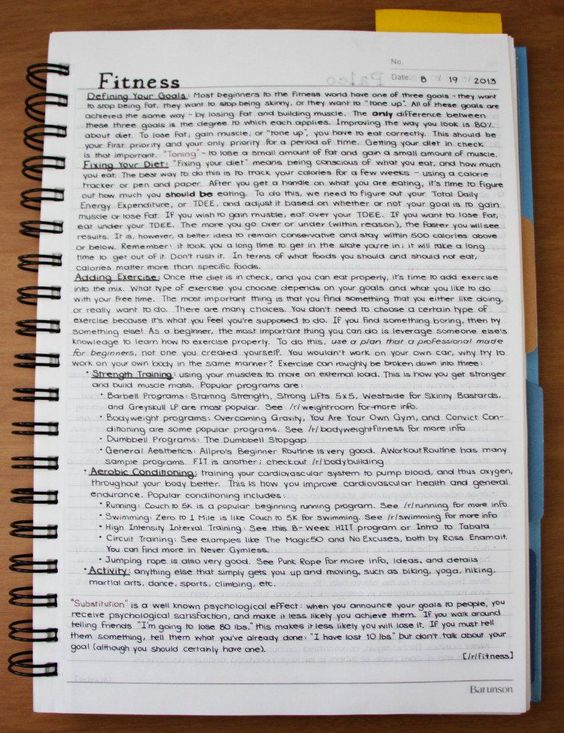 No.
Date. 8 19 2013
Fitness
Defining Your Goals: Most beginners to the fitness world have one of three goals - they want
to stop being fat, they want to stop being skinny, or they want to "tone up". All of these goals are
achieved the same way - by losing fat and building muscle. The only difference between
these three goals is the degree to which each applies. Improving the way you look is 80%
about diet. To lose fat, gain muscle, or "tone up", you have to eat correctly. This should be
your first priority and your only priority for a period of time. Getting your diet in check
is that important. "Toning" - to lose a small amount of fat and gain a small amount of muscle.
Fixing Your Diet: "Fixing your diet" means being conscious of what you eat, and how much
you eat. The best way to do this is to track your calories for a few weeks - using a calorie
tracker or pen and paper. After you get a handle on what you are eating, it's time to figure
out how much you should be eating. To do this, we need to figure out your Total Daily
Energy Expenditure, or TDEE, and adjust it based on whether or not your goal is to gain
muscle or lose fat. If you wish to gain muscle, eat over your TDEE. If you want to lose fat,
eat under your TDEE. The more you go over or under (within reason), the faster you will see
results. It is, however, a better idea to remain conservative and stay within 500 calories above
or below. Remember: it took you a long time to get in the state you're in; it will take a long
time to get out of it. Don't rush it. In terms of what foods you should and should not eat,
calories matter more than specific foods.
Adding Exercise: Once the diet is in check, and you can eat properly, it's time to add exercise
into the mix. What type of exercise you choose depends on your goals and what you like to do
with your free time. The most important thing is that you find something that you either like doing,
or really want to do. There are many choices. You don't need to choose a certain type of
exercise because it's what you feel you're supposed to do. If you find something boring, then try
something else! As a beginner, the most important thing you can do is leverage someone else's
knowledge to learn how to exercise properly. To do this, use a plan that a professional made
for beginners, not one you created yourself. You wouldn't work on your own car, why try to
work on your own body in the same manner? Exercise can roughly be broken down into three:
• Strength Training: using your muscles to move an external load. This is how you get stronger
and build muscle mass. Popular programs are:
• Barbell Programs: Starting Strength, Strong Lifts 5x5, Westside for Skinny Bastards,
and Greyskull LP are most popular. See /r/weightroom for more info.
• Bodyweight programs: Overcoming Gravity, You Are Your Own Gym, and Convict Con-
ditioning are some popular programs. See /r/bodyweightfitness for more info
• Dumbbell Programs: The Dumbbell Stopgap
• General Aesthetics: Allpro's Beginner Routine is very good. AWorkoutRoutine has many
sample programs. FIT is another; checkout /r/bodybuilding
• Aerobic Conditioning: training your cardiovascular system to pump blood, and thus oxygen,
throughout your body better. This is how you improve cardiovascular health and general
endurance. Popular conditioning includes:
• Running: Couch to 5K is a popular beginning running program. See /r/running for more info
• Swimming: Zero to 1 Mile is like Couch to 5K for swimming. See /r/swimming for more info
• High Intensity Interval Training: See this 8-Week HIIT program or Intro to Tabata
• Circuit Training: See examples like The Magic50 and No Excuses, both by Ross Enamait.
You can find more in Never Gymless.
• Jumping rope is also very good. See Punk Rope for more info, ideas, and details
• Activity: anything else that simply gets you up and moving, such as biking, yoga, hiking,
martial arts, dance, sports, climbing, etc.
"Substitution" is a well known psychological effect: when you announce your goals to people, you
receive psychological satisfaction, and make it less likely you achieve them. If you walk around
telling friends "I'm going to lose 80 lbs." this makes it less likely you will lose it. If you must tell
them something, tell them what you've already done: "I have lost 10 lbs" but don't talk about your
goal (although you should certainly have one).
[/r/Fitness]
Barunson